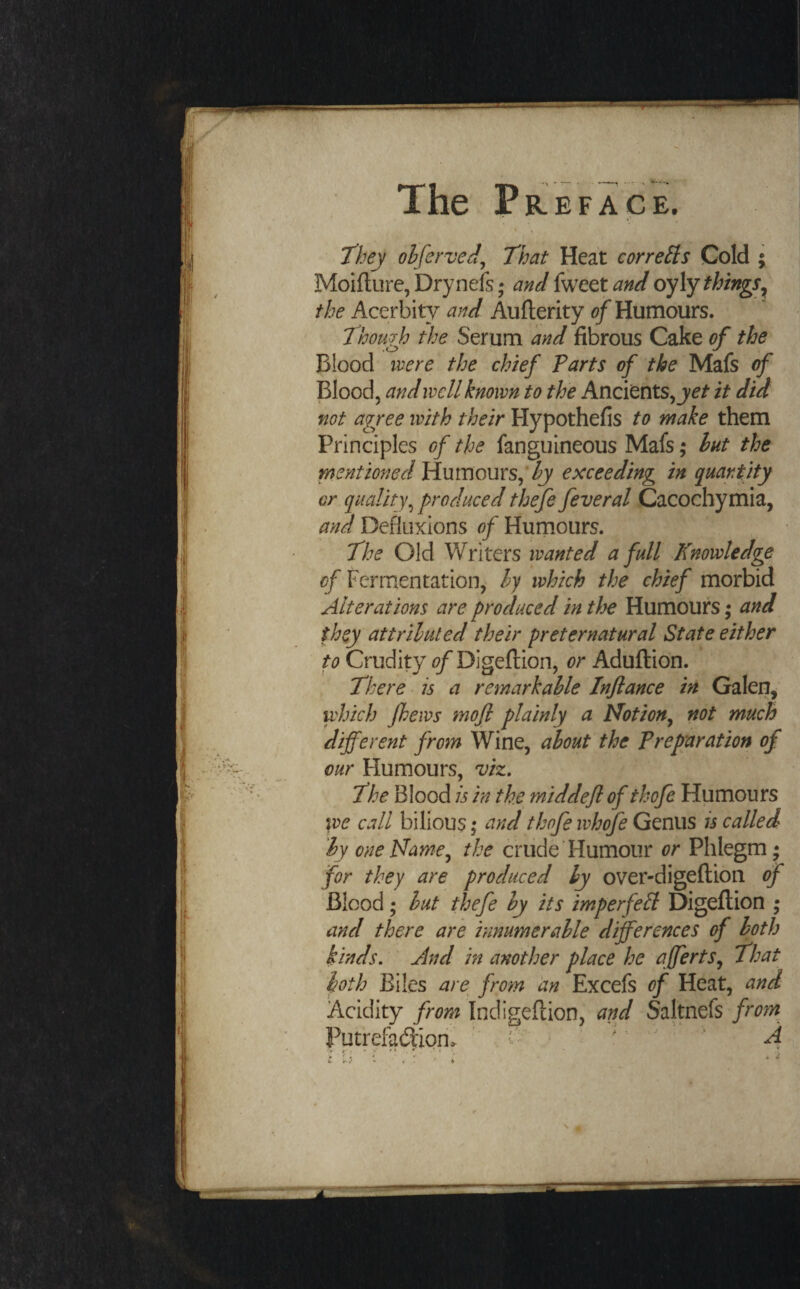 The PREFACE.
They obſerved, That Heat corrects Cold ;
Moiſture, Dryneſs ; and ſweet and oyly things,
the Acerbity and Auſterity of Humours.
Though the Serum and fibrous Cake of the
Blood were the chief Parts of the Maſs of
Blood, and well known to the Ancients, yet it did
not agree with their Hypotheſis to make them
Principles of the ſanguineous Maſs ; but the
mentioned Humours, by exceeding in quantity
or quality, produced theſe ſeveral Cacochymia,
and Defluxions of Humours.
The Old Writers wanted a full Knowledge
of Fermentation, by which the chief morbid
Alterations are produced in the Humours ; and
they attributed their preternatural State either
to Crudity of Digeſtion, or Aduſtion.
There is a remarkable Inſtance in Galen,
which ſhews moſt plainly a Notion, not much
different from Wine, about the Preparation of
our Humours, viz.
The Blood is in the middeſt of thoſe Humours
we call bilious ; and thoſe whoſe Genus is called
by one Name, the crude Humour or Phlegm ;
for they are produced by over-digeſtion of
Blood ; but theſe by its imperfect Digeſtion ;
and there are innumerable differences of both
kinds. And in another place he aſſerts, That
both Biles are from an Exceſs of Heat, and
Acidity from Indigeſtion, and Saltneſs from
Putrefaction.
A